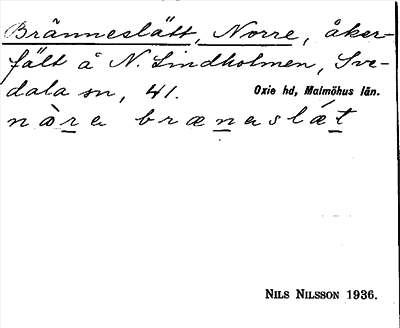 Bränneslätt, Norre, åker-
fält å N. Lindholmen, Sve-
dala sn, 41. Oxie hd, Malmöhus län.
nòra brænaslǽt
NILS NILSSON 1936.